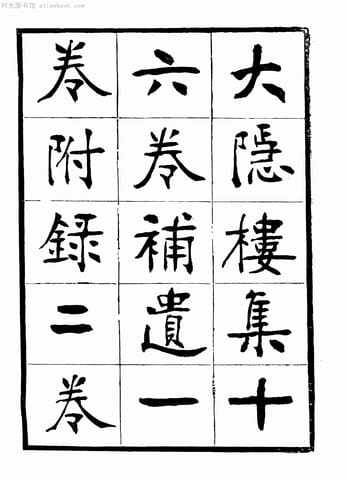 时光图书馆·atimebook.com
大隱樓集十
六卷補遺一
卷附録二卷